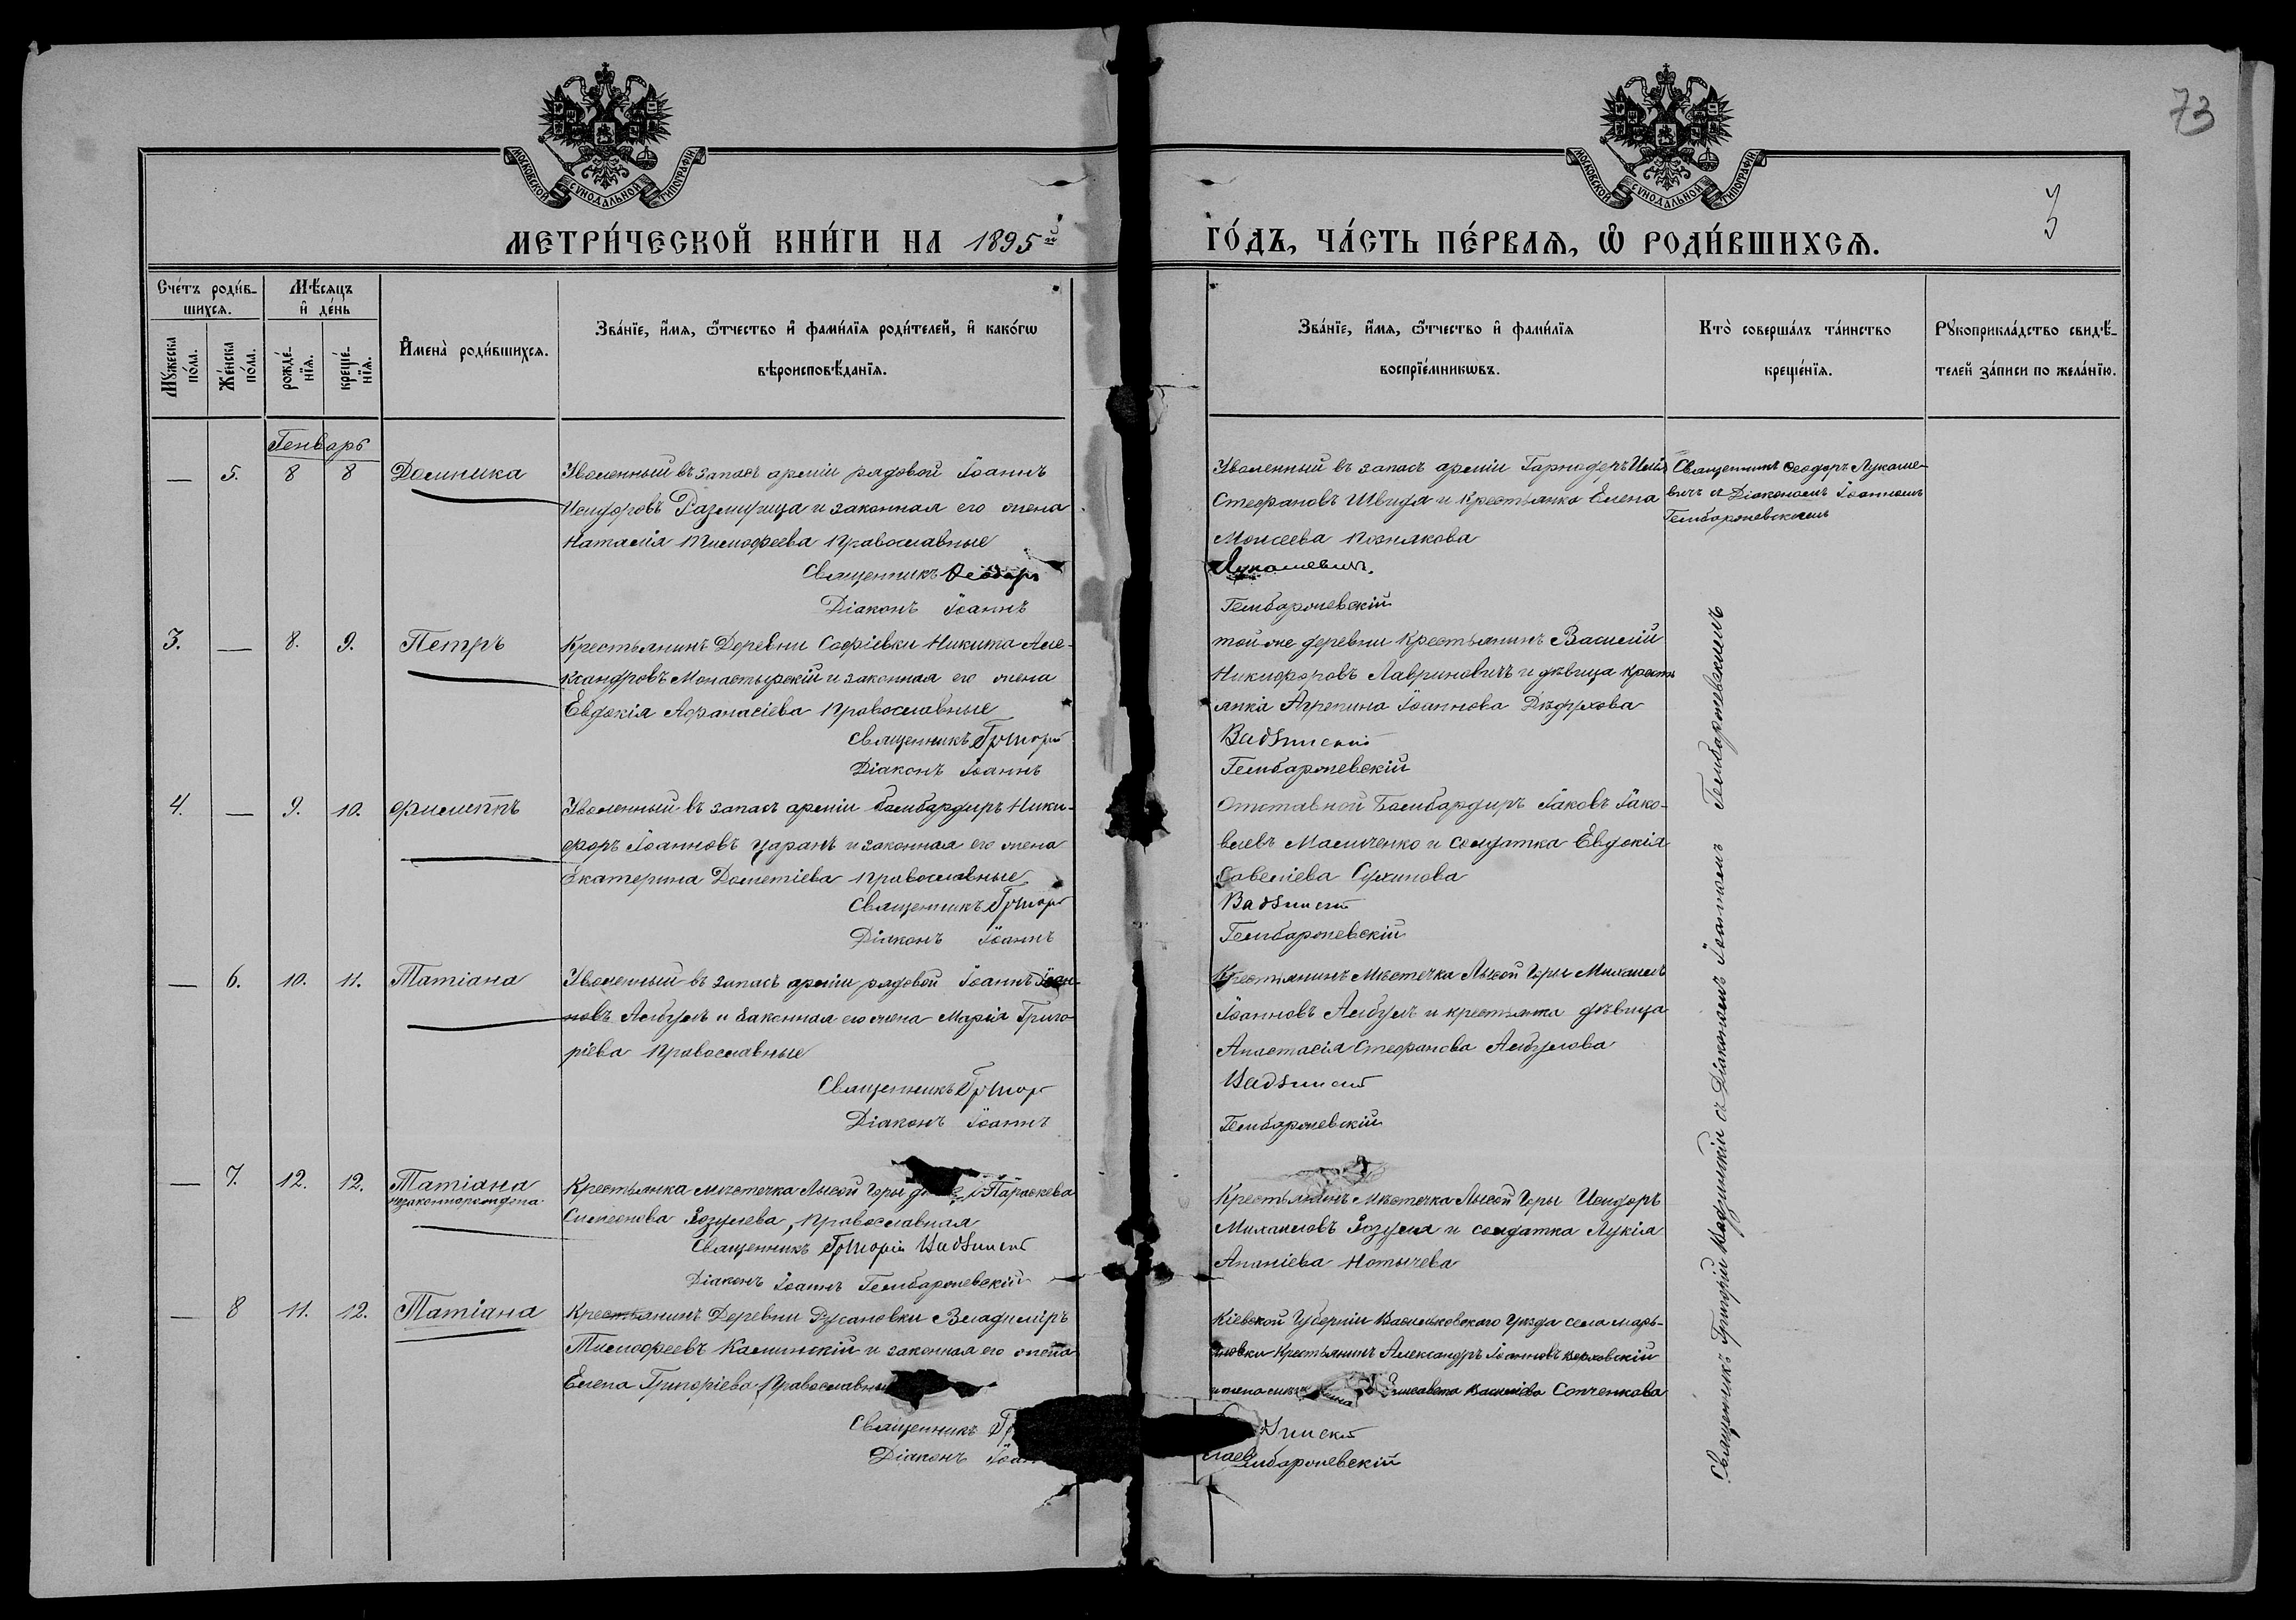 73
3
МОСКОВСКОЙ СѴНОДАЛЬНОЙ ТИПОГРАФІИ
МОСКОВСКОЙ СѴНОДАЛЬНОЙ ТИПОГРАФІИ
МЕТРИ́ЧЕСКОЙ КНИ́ГИ НА 1895й
ГО́ДЪ, ЧА́СТЬ ПЕ́РВАѦ, Ѡ РОДИ́ВШИХСѦ.
Сче́тъ роди́в-
шихсѧ.
Мѣсѧцъ
и де́нь
Мꙋжеска
по́ла.
Же́нска
по́ла.
рожде́-
нїѧ.
креще́-
нїѧ.
Имена̀ роди́вшихсѧ.
Зва́нїе, и́мѧ, ѻ́тчество и фами́лїѧ роди́телей, и како́гѡ
вѣроисповѣ́данїѧ.
Зва́нїе, и́мѧ, ѻ́тчество и фами́лїѧ
воспрїе́мникѡвъ.
Кто̀ соверша́лъ та́инство
креще́нїѧ.
Рꙋкоприкла́дство свидѣ́-
телей за́писи по жела́нїю.
Генварь
— 5. 8 8 Домника
Уволенный въ запасъ арміи рядовой Іоаннъ
Исидоровъ Размирица и законная его жена
Наталія Тимофеева православные
Священникъ Ѳеодоръ
Діаконъ Іоаннъ
Уволенный въ запасъ арміи Гарнадеръ
Стефановъ Швида и крестьянка Елена
Моисеева Познякова
Лукашевичъ.
Гембаржевскій
Священникъ Ѳеодоръ Лукаше-
вичъ съ Діакономъ Іоанномъ
Гембаржевскимъ
3. — 8. 9. Петръ
Крестьянинъ Деревни Софіевки Никита Але-
ксандровъ Монастырскій и законная его жена
Евдокія Афанасіева православные
Священникъ Григорій
Діаконъ Іоаннъ
той же деревни крестьянинъ Василій
Никифоровъ Лавриновичъ и дѣвица крестъ
янка Агрепина Іоаннова Дѣдухова
Вадзинскій
Гембаржевскій
4. — 9. 10. Филиппъ
Уволенный въ запасъ арміи бомбардиръ Ники-
форъ Іоанновъ Царанъ и законная его жена
Екатерина Дометіева православные
Священникъ Григорій
Діаконъ Іоаннъ
Отставной Бомбардиръ Іаковъ Іако-
влевъ Мальченко и солдатка Евдокія
Савеліева Сухинова
Вадзинскій
Гембаржевскій
— 6. 10. 11. Татіана
Уволенный въ запасъ арміи рядовой Іоаннъ Іоан-
новъ Албулъ и законная его жена Марія Григо-
ріева православные
Священникъ Григор
Діаконъ Іоаннъ
Крестьянинъ Мѣстечка Лысой Горы Михаилъ
Іоанновъ Албулъ и крестьянка дѣвица
Анастасія Стефанова Албулова
Вадзинскій
Гембаржевскій
— 7. 12. 12. Татіана
незаконнорождена
Крестьянка мѣстечка Лысой Горы Параскева
Симеонова Зозулева, православная
Священникъ Григорій Вадзинскій
Діаконъ Іоаннъ Гембаржевскій
Крестьянинъ Мѣстечка Лысой Горы Исидоръ
Михаиловъ Зозуля и солдатка Лукія
Ананіева
— 8 11. 12. Татіана
Крестьянинъ Деревни Русановки Владиміръ
Тимофеевъ Калинскій и законная его жена
Елена Григоріева, православны
Священникъ Гр
Діаконъ Іоан
Кіевской Губерніи Васильковскаго Уѣзда села Марь-
яновки Крестьянинъ Александръ Іоанновъ
Елисавета Василіева Сопченкова
дзинскій
мбаржевскій
Священникъ Григорій Вадзинскій съ Діакономъ Іоанномъ Гембаржевскимъ